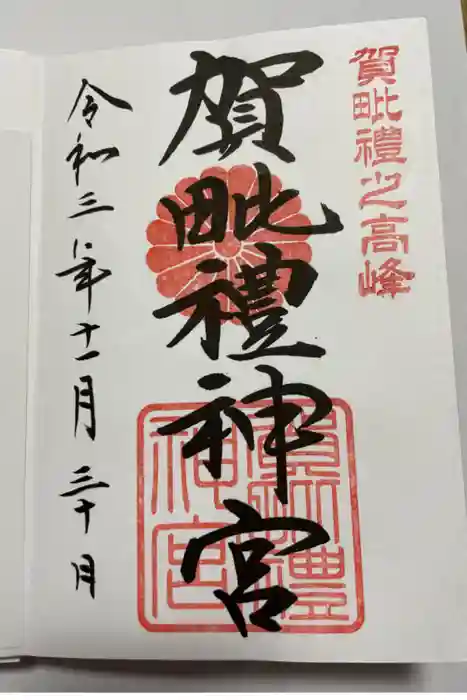 賀毗禮之高峰
賀毗禮神宮
賀毗禮神宮
令和三年十一月三十日